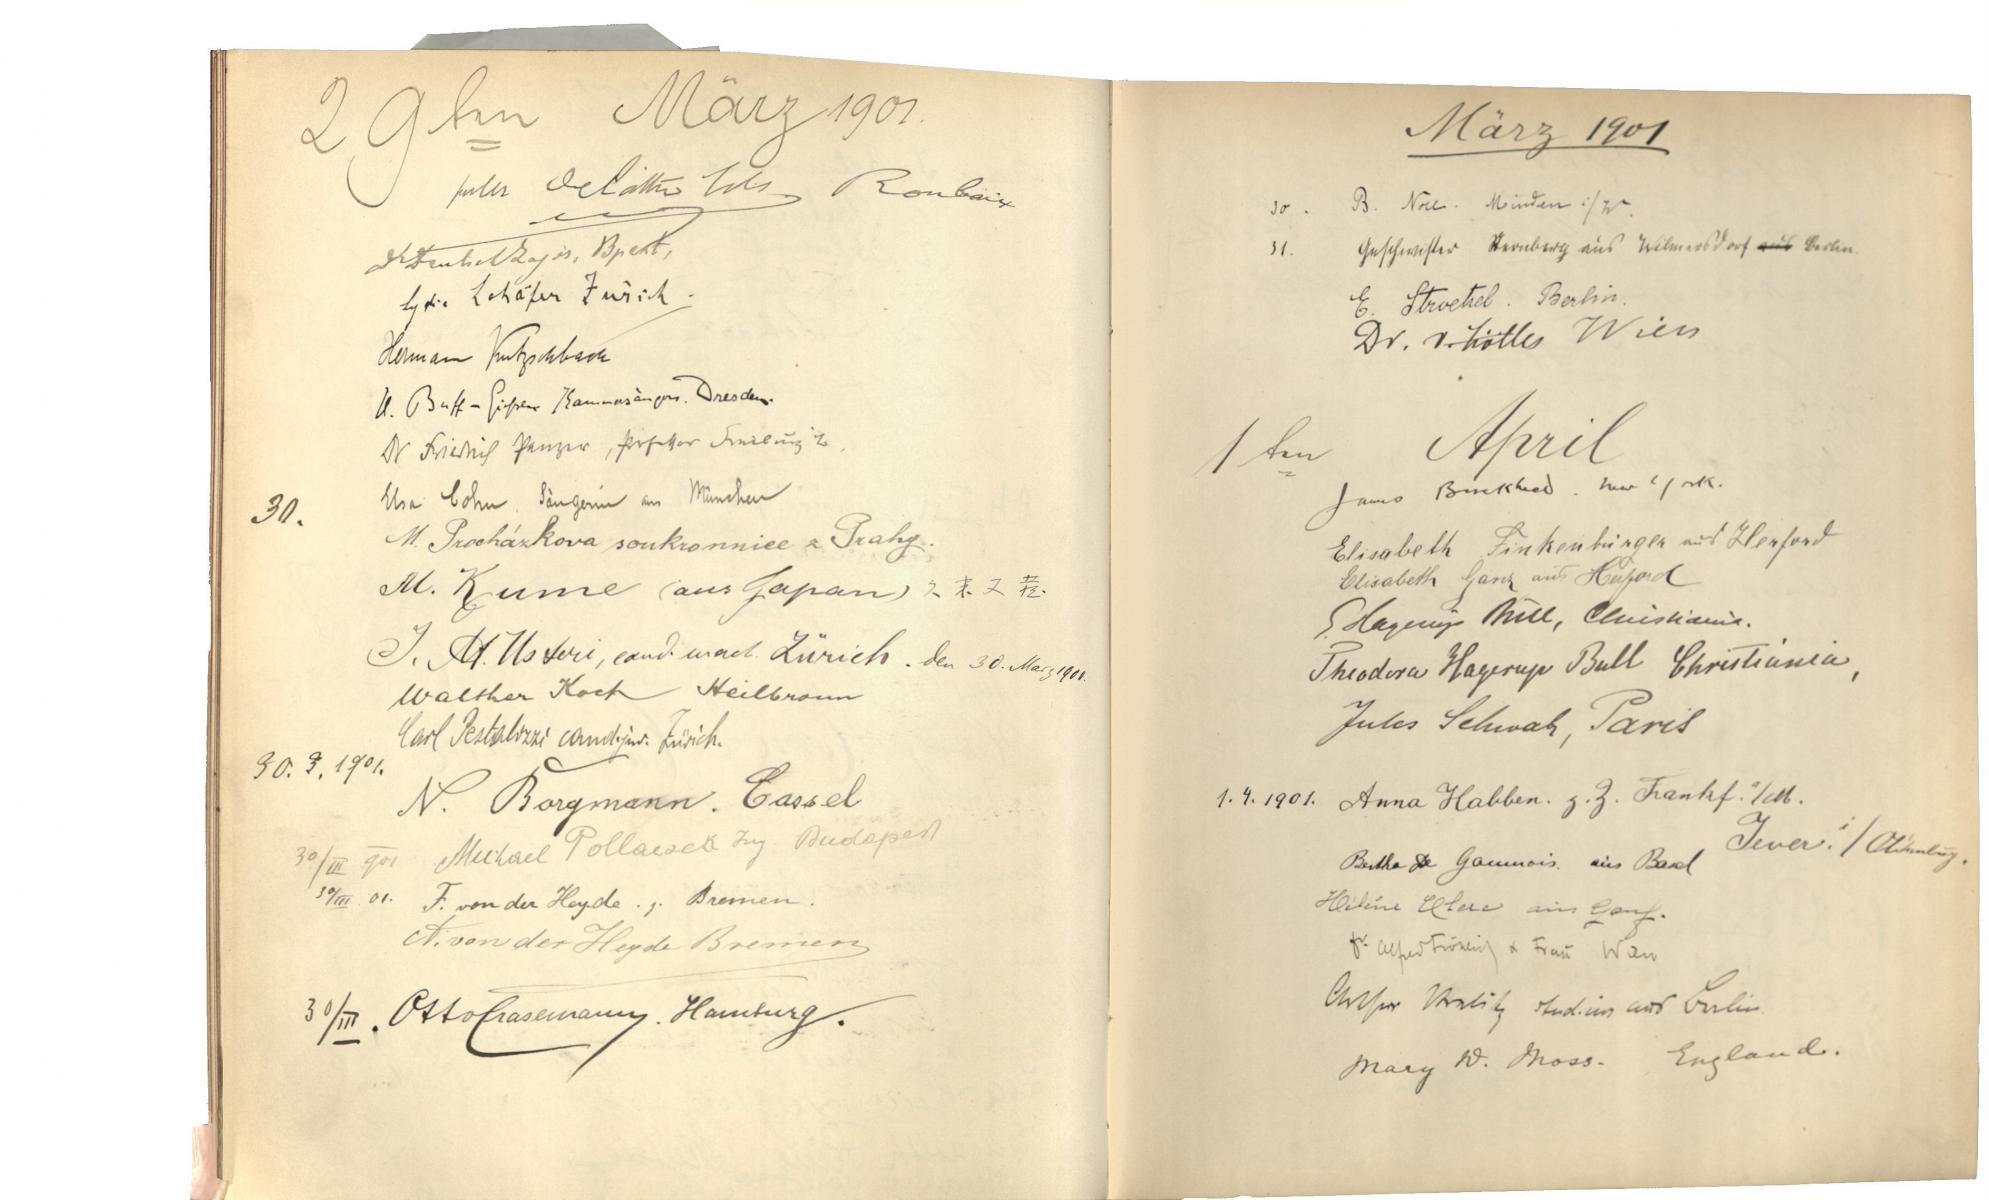 29ten März 1901.
Roubaix
Bpest,
Lydia Schäfer Zürich.
Herman Kutzschbach
U. Buff-Giessen Kammersänger. Dresden.
Dr Friedrich Panzer, Professor Freiburg i/B.
30. Elsa Cohn. Sängerin aus München
M. Procházkova soukromnice z Prahy.
M. Kume (aus Japan)
J. M. Usteri, cand. med. Zürich. den 30. März 1901.
Walther Koch Heilbronn
Carl Pestalozzi cand. jur. Zürich.
30. 3. 1901.
N. Borgmann. Cassel
30/III 901 Michael Pollacsek Ing. Budapest
30/III 01. F. von der Heyde. Bremen.
A. von der Heyde Bremen
30/III. Otto Crasemann. Hamburg.
März 1901
30. B. Noll. Minden i/W.
31. Geschwister Sternberg aus Wilmersdorf aus Berlin.
E. Stroetzel. Berlin.
Dr. Wien
1ten April
James Burkhead. New York.
Elisabeth Finkenbürger aus Herford
Elisabeth Ganz aus Herford
E. Hagerup Bull, Christiania.
Theodora Hagerup Bull Christiania,
Jules Schwab, Paris
1. 4. 1901. Anna Habben. z. Z. Frankf. a/M.
Jever. i/Oldenburg.
Bertha Gaunois. aus Basel
Hélène aus Genf.
Dr. Alfred Fröhlich & Frau Wien
Arthur stud. ing aus Berlin
Mary W. Moss. England.